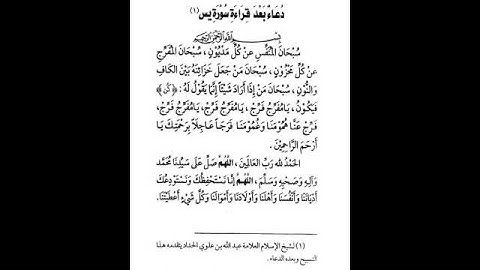 دُعَاءٌ بَعْدَ قِرَاءَةِ سُوْرَةِ يس (١)
بِسْمِ اللَّهِ الرَّحْمَنِ الرَّحِيمِ
سُبْحَانَ الْمُنَفِّسِ عَنْ كُلِّ مَدْيُوْنٍ ، سُبْحَانَ الْمُفَرِّجِ
عَنْ كُلِّ مَحْزُوْنٍ ، سُبْحَانَ مَنْ جَعَلَ خَزَائِنَهُ بَيْنَ الْكَافِ
وَالنُّوْنِ ، سُبْحَانَ مَنْ إِذَا أَرَادَ شَيْئًا إِنَّمَا يَقُوْلُ لَهُ : ﴿كُنْ﴾
فَيَكُوْنُ ، يَا مُفَرِّجُ فَرِّجْ ، يَا مُفَرِّجُ فَرِّجْ ، يَا مُفَرِّجُ فَرِّجْ،
فَرِّجْ عَنَّا هُمُوْمَنَا وَغُمُوْمَنَا فَرَجًا عَاجِلًا بِرَحْمَتِكَ يَا
أَرْحَمَ الرَّاحِمِيْنَ .
الْحَمْدُ لِلهِ رَبِّ الْعَالَمِيْنَ ، اللَّهُمَّ صَلِّ عَلَى سَيِّدِنَا مُحَمَّدٍ
وَآلِهِ وَصَحْبِهِ وَسَلِّمْ ، اللَّهُمَّ إِنَّا نَسْتَحْفِظُكَ وَنَسْتَوْدِعُكَ
أَدْيَانَنَا وَأَنْفُسَنَا وَأَهْلَنَا وَأَوْلَادَنَا وَأَمْوَالَنَا وَكُلَّ شَيْءٍ أَعْطَيْتَنَا.
(١) لشيخ الإسلام العلامة عبد الله بن علوي الحداد يتقدمه هذا
التسبيح وبعده الدعاء .